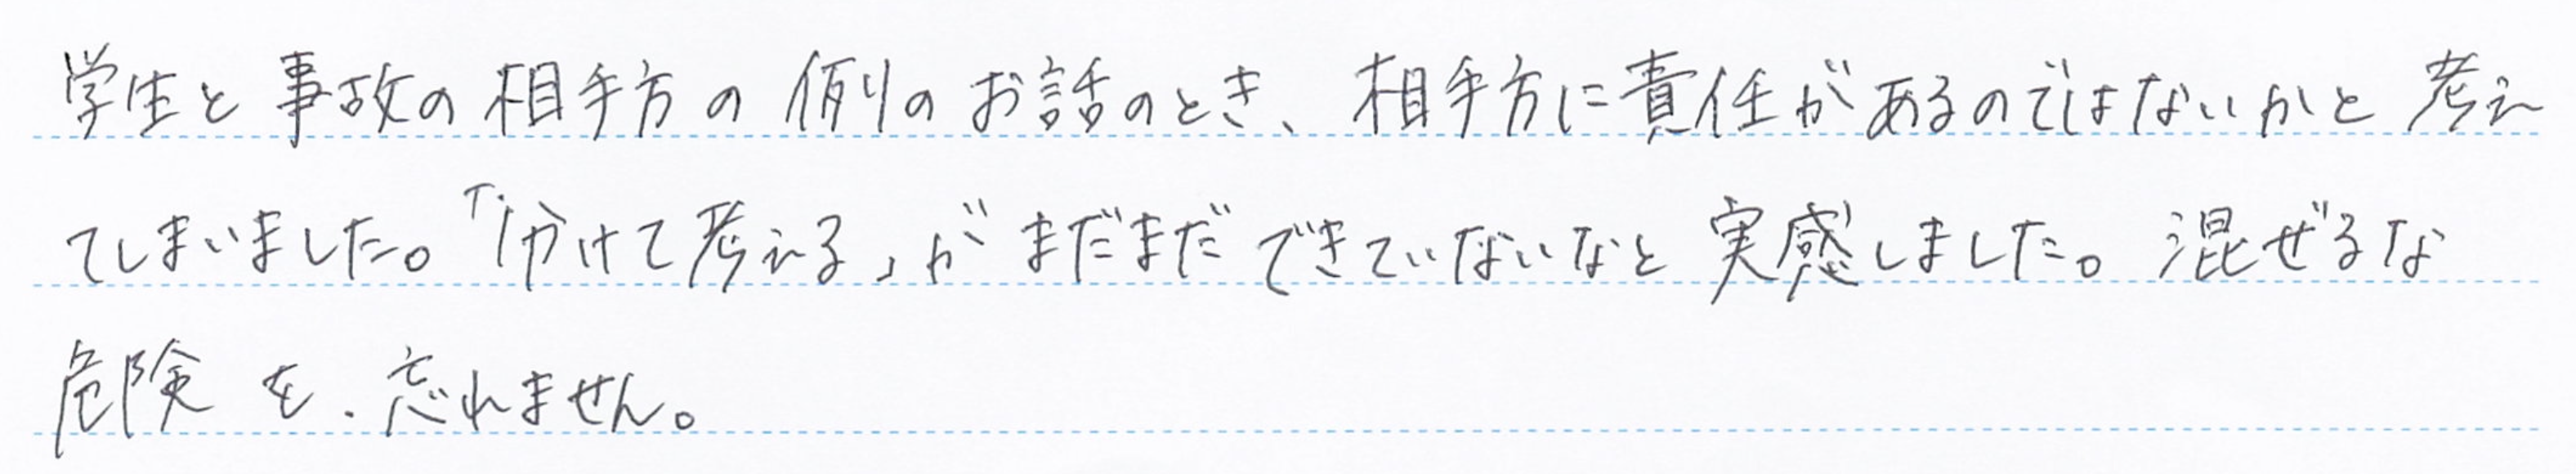 学生と事故の相手方の例のお話のとき、相手方に責任があるのではないかと考え
てしまいました。「分けて考える」がまだまだできていないなと実感しました。混ぜるな
危険を、忘れません。